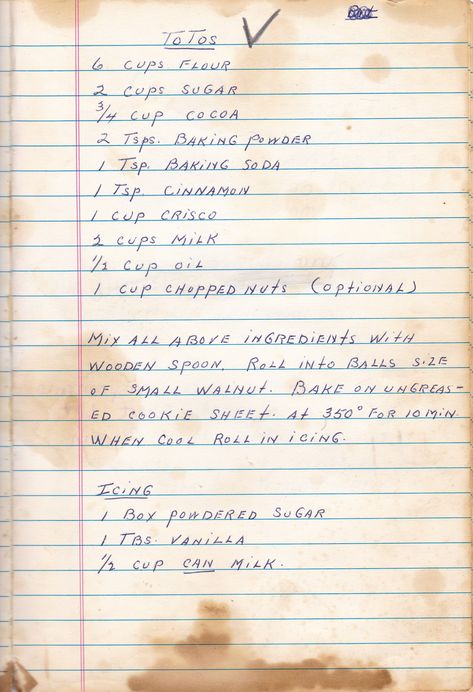 ToTos
6 cups flour
2 cups sugar
3/4 cup cocoa
2 Tsps. Baking Powder
1 Tsp. Baking Soda
1 Tsp. Cinnamon
1 cup Crisco
2 cups Milk
1/2 cup oil
1 cup chopped nuts (optional)
Mix all above ingredients with
wooden spoon. Roll into balls size
of small walnut. Bake on ungreas-
ed cookie sheet. at 350° for 10 min.
When cool roll in icing.
Icing
1 Box powdered sugar
1 Tbs. vanilla
1/2 cup can milk.